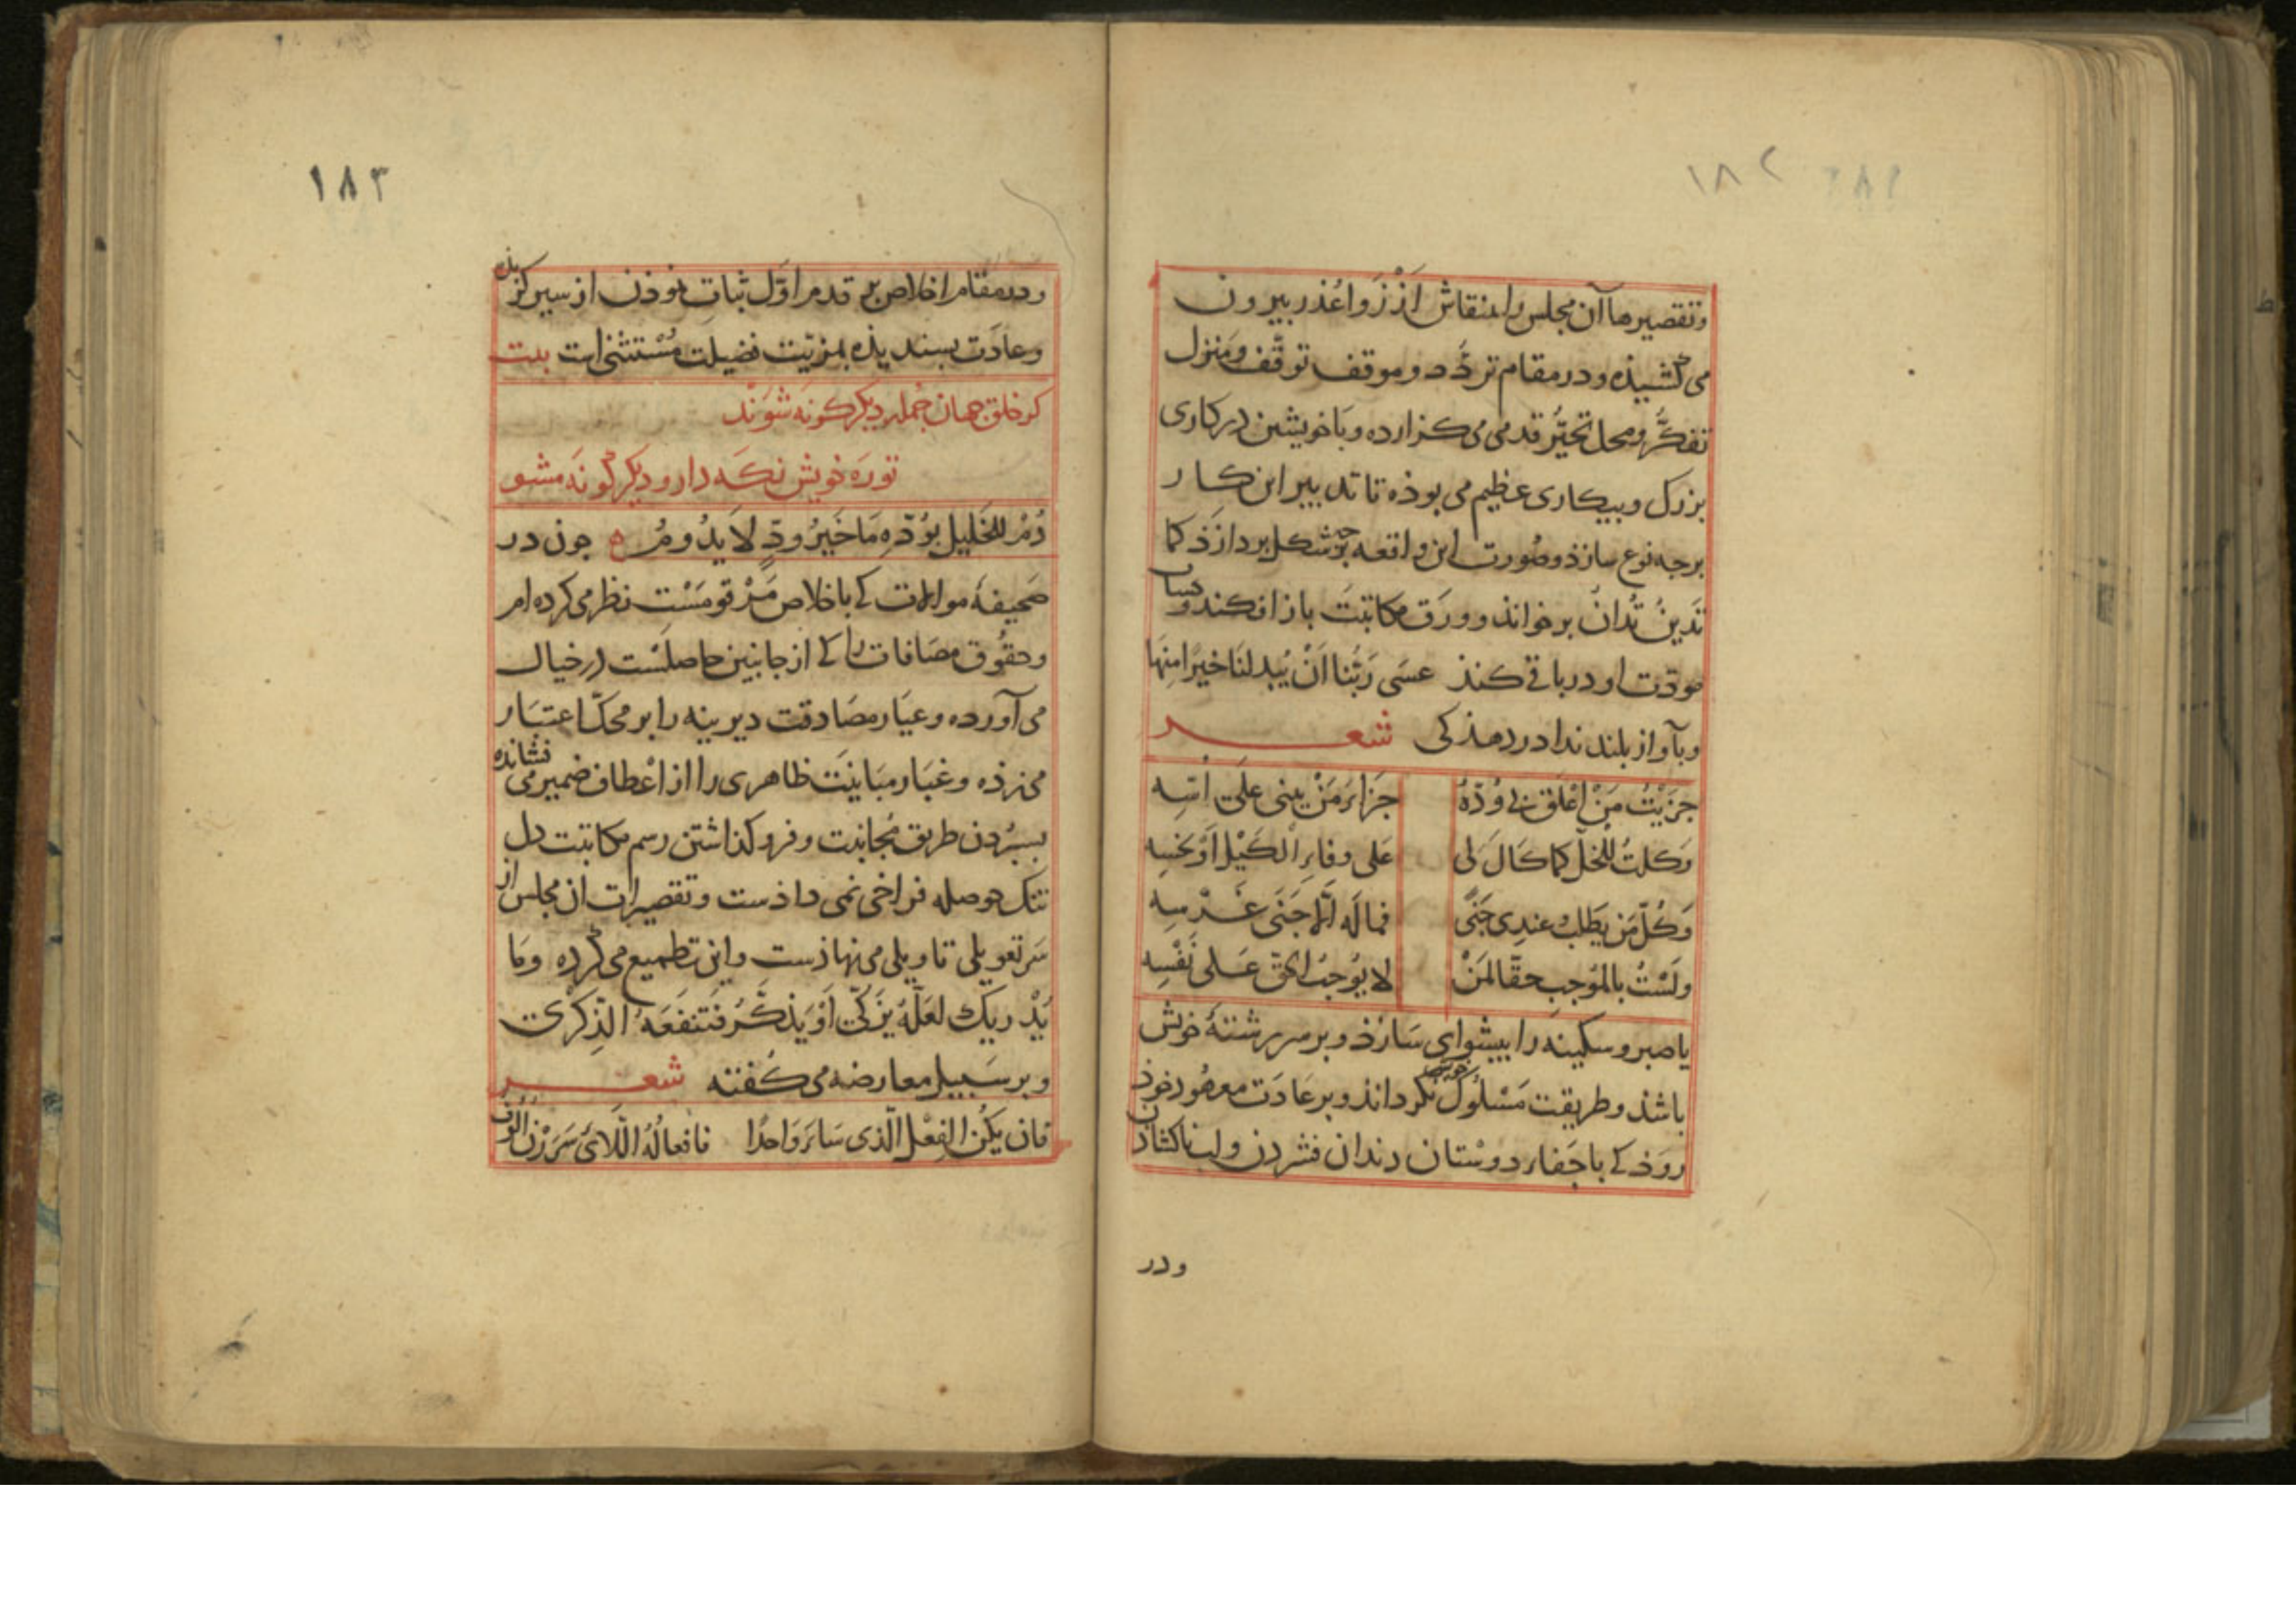 ١٨٢
وتقصیرها آن مجلس را بمنقاش از زوا عذر بیرون
می کشیذه و در مقام تردّد و موقف توقّف و منزل
تفکّر و محل تحیّر قدمی می کزارده و با خویشتن در کاری
بزرک و بیکاری عظیم می بوذه تا تدبیر این کار
برجه نوع سازذ و صُورت این واقعه برجه شکل بردازَذ کما
تَدینُ تُدانُ برخواند و ورَق مکاتبَت باز افکند و حساب
مودّت او در باقی کنذ عسَی رَبُّنا اَنْ یُبدلنَا خیرًا منِهَا
و بآواز بلند ندا در دهذ کی شعر
جزَیْتُ مَنْ اَعْلَقَ بی وُدّهُ جَزاءَ مَنْ یبنی علَی اُسّه
وَکلتُ للخلّ کما کالَ لی علی وفاء الکَیْل اَوْ بخسِه
وَکُلّ مَن یَطلبُ عندِی جَنًی فما لَه الّا جَنَی غَرْسِه
ولَسْتُ بالمُوجبِ حقّا لمَنْ لا یُوجبُ الحقّ عَلی نَفْسِه
یا صبر و سکینه را بیشوای سَازذ و بر سر رشتهٔ خویش
باشذ و طریقت مَسْلُوک خویش نکرداند و بر عادَت معهُود خوذ
روَذ که با جَفاء دوستان دندان فشردن و لب ناکشاذن
ودر
١٨٣
و در مقام اخلاص بر قدم اوّل ثبات نموذن از سیر کزیذه
و عادَت بسندیذه بمزیّت فضیلت مُسْتثنی است بیت
کر خلق جهان جُمله دیکر کونه شوَند
تو رَه خویش نکه دار و دیکر کونَه مشو
دُمْ للخَلیل بوُدّهِ مَا خَیرُ ودٍّ لا یدُومُ ه جون در
صَحیفهٔ موالات که باخلاص مَرْقومَسْت نظر می کرده ام
و حقُوق مصَافات را که از جانبین حاصلَسْت در خیال
می آورده و عیَار مصَادقت دیرینه را بر محکّ اعتبَار
می زده و غبَار مبَاینَت ظاهری را از اعْطاف ضمیر می فشانده
بسبُردن طریق مُجانبت و فرو کذاشتن رسم مکاتبت دل
تنک حوصله فراخی نمی داذست و تقصیرات ان مجلس از
سَر تعویلی تاویلی می نهاذست و این تطمیع می کرده وَمَا
یُدْریکَ لعَلّهُ یَزّکّی اَوْ یَذّکَّرُ فَتنفَعَهُ الذِّکرَی
و بر سَبیل معارضه می کفته شعر
فان یکُن الفِعْل الّذی سَاءَ وَاحدًا فافعالُهُ اللّائی سَرَرْنَ اُلُوف